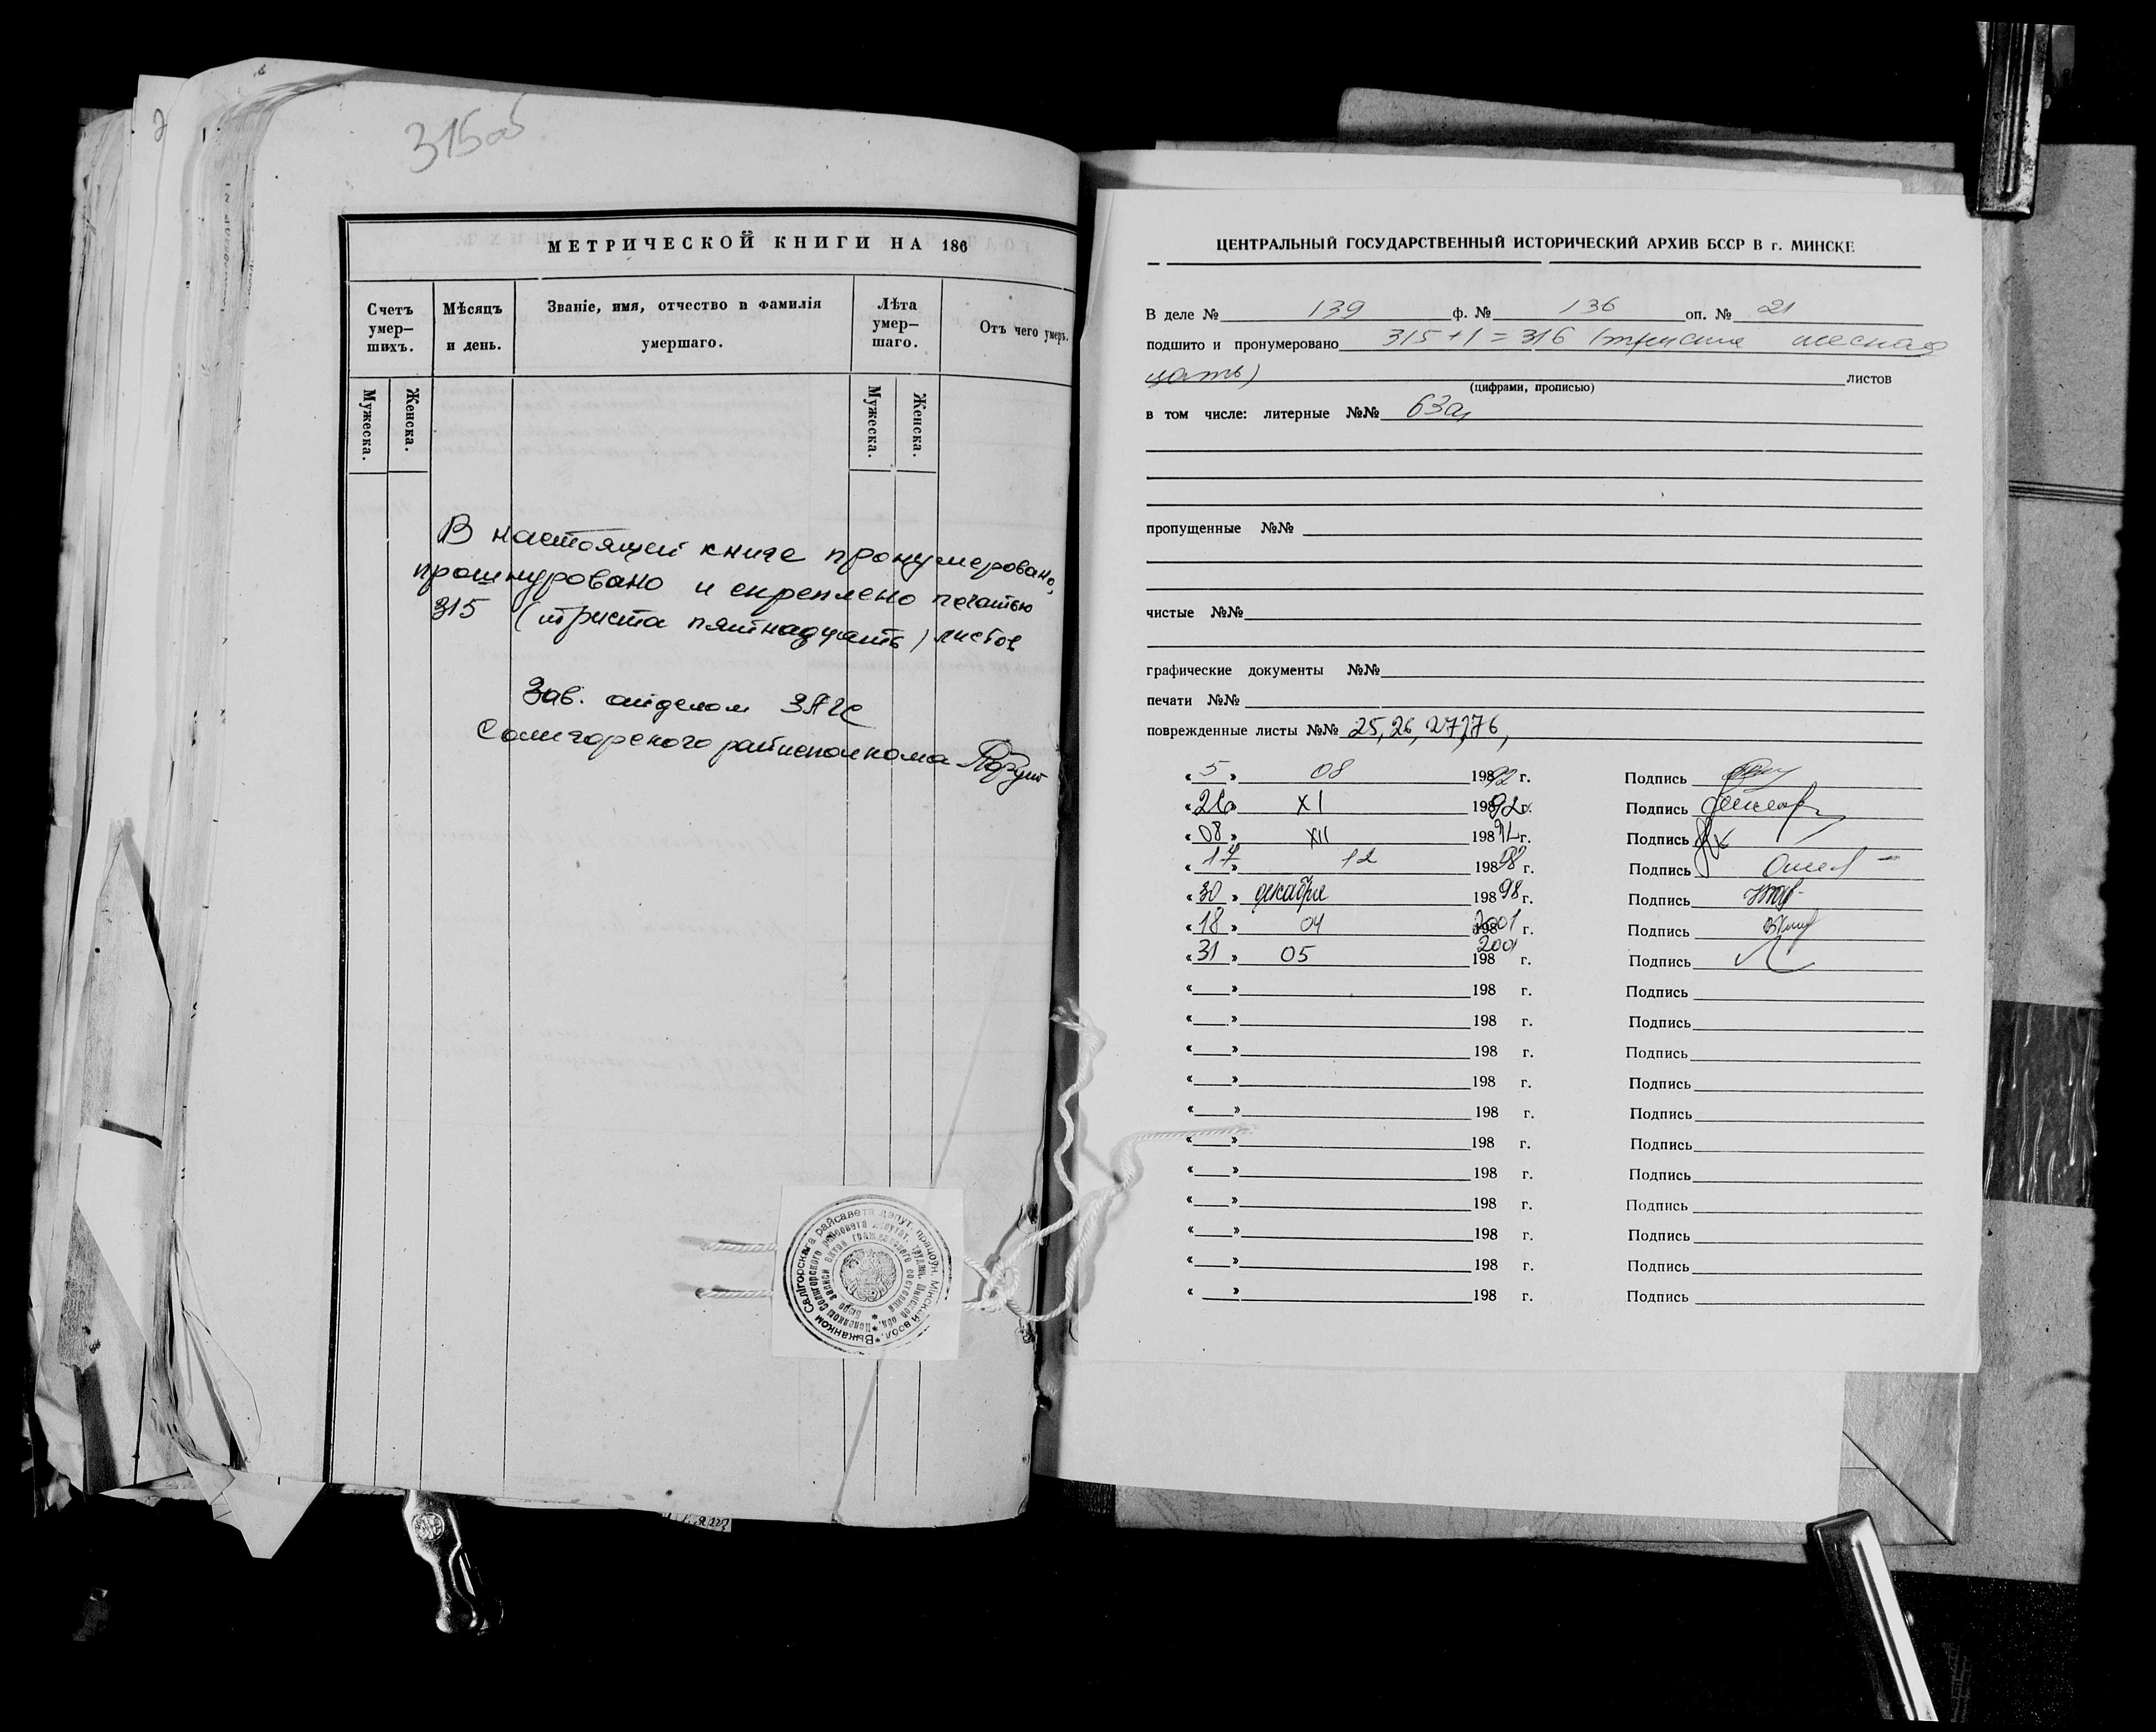 315об
МЕТРИЧЕСКОЙ КНИГИ НА 186
Счетъ умер-шихъ.
Мѣсяцъ и день.
Званіе, имя, отчество и фамилія умершаго.
Лѣта умер-шаго.
Отъ чего умеръ.
Мужеска.
Женска.
Мужеска.
Женска.
В настоящей книге пронумеровано,
прошнуровано и скреплено печатью
315 (триста пятнадцать) листов
Зав. отделом ЗАГС
Солигорского райисполкома
Выканком Салігорскага райсавета дэпут. працоўн. Мінскай вобл.
Исполком Солигорского райсовета депутат. трудящ. Минской обл.
Бюро записи актов гражданского состояния
ЦЕНТРАЛЬНЫЙ ГОСУДАРСТВЕННЫЙ ИСТОРИЧЕСКИЙ АРХИВ БССР В г. МИНСКЕ
В деле № 139 ф. № 136 оп. № 21
подшито и пронумеровано 315+1=316 (триста шестнад
цать) листов
(цифрами, прописью)
в том числе: литерные №№ 63а,
пропущенные №№
чистые №№
графические документы №№
печати №№
поврежденные листы №№ 25, 26, 27, 276,
« 5 » 08 198 92 г. Подпись
« 26 » XI 198 92 г. Подпись
« 08 » XII 198 92 г. Подпись
« 17 » 12 198 98 г. Подпись
« 30 » декабря 198 98 г. Подпись
« 18 » 04 198 2001 г. Подпись
« 31 » 05 198 2001 г. Подпись
« » 198 г. Подпись
« » 198 г. Подпись
« » 198 г. Подпись
« » 198 г. Подпись
« » 198 г. Подпись
« » 198 г. Подпись
« » 198 г. Подпись
« » 198 г. Подпись
« » 198 г. Подпись
« » 198 г. Подпись
« » 198 г. Подпись